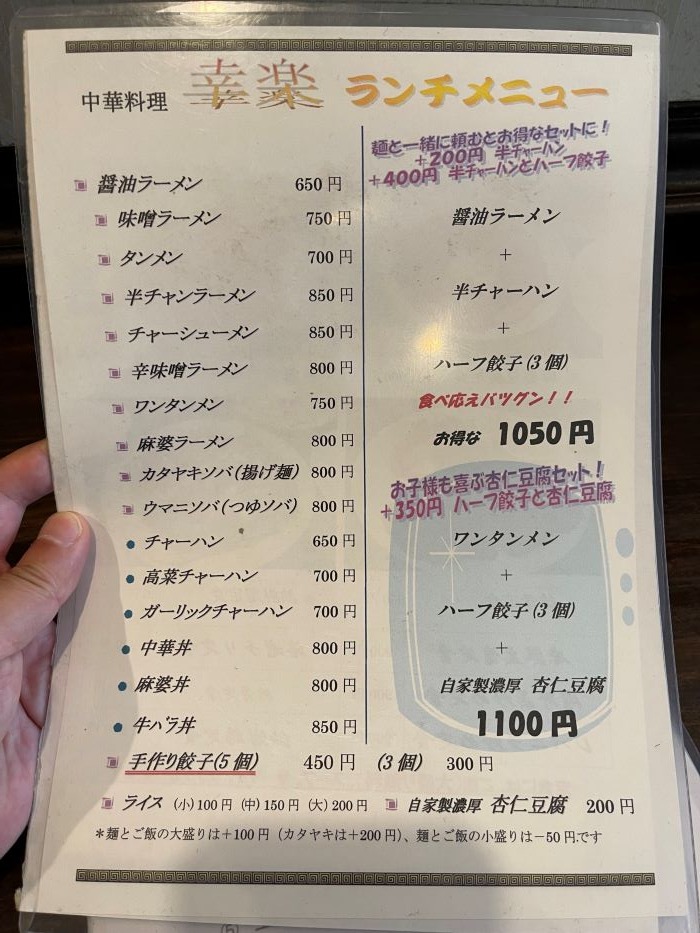 中華料理 幸楽 ランチメニュー
醤油ラーメン 650円
味噌ラーメン 750円
タンメン 700円
半チャンラーメン 850円
チャーシューメン 850円
辛味噌ラーメン 800円
ワンタンメン 750円
麻婆ラーメン 800円
カタヤキソバ(揚げ麺) 800円
ウマニソバ(つゆソバ) 800円
チャーハン 650円
高菜チャーハン 700円
ガーリックチャーハン 700円
中華丼 800円
麻婆丼 800円
牛バラ丼 850円
麺と一緒に頼むとお得なセットに!
+200円 半チャーハン
+400円 半チャーハンとハーフ餃子
醤油ラーメン
+
半チャーハン
+
ハーフ餃子(3個)
食べ応えバツグン!!
お得な 1050円
お子様も喜ぶ杏仁豆腐セット!
+350円 ハーフ餃子と杏仁豆腐
ワンタンメン
+
ハーフ餃子(3個)
+
自家製濃厚 杏仁豆腐
1100円
手作り餃子(5個) 450円 (3個) 300円
ライス (小)100円 (中)150円 (大)200円 自家製濃厚 杏仁豆腐 200円
*麺とご飯の大盛りは+100円(カタヤキは+200円)、麺とご飯の小盛りは−50円です